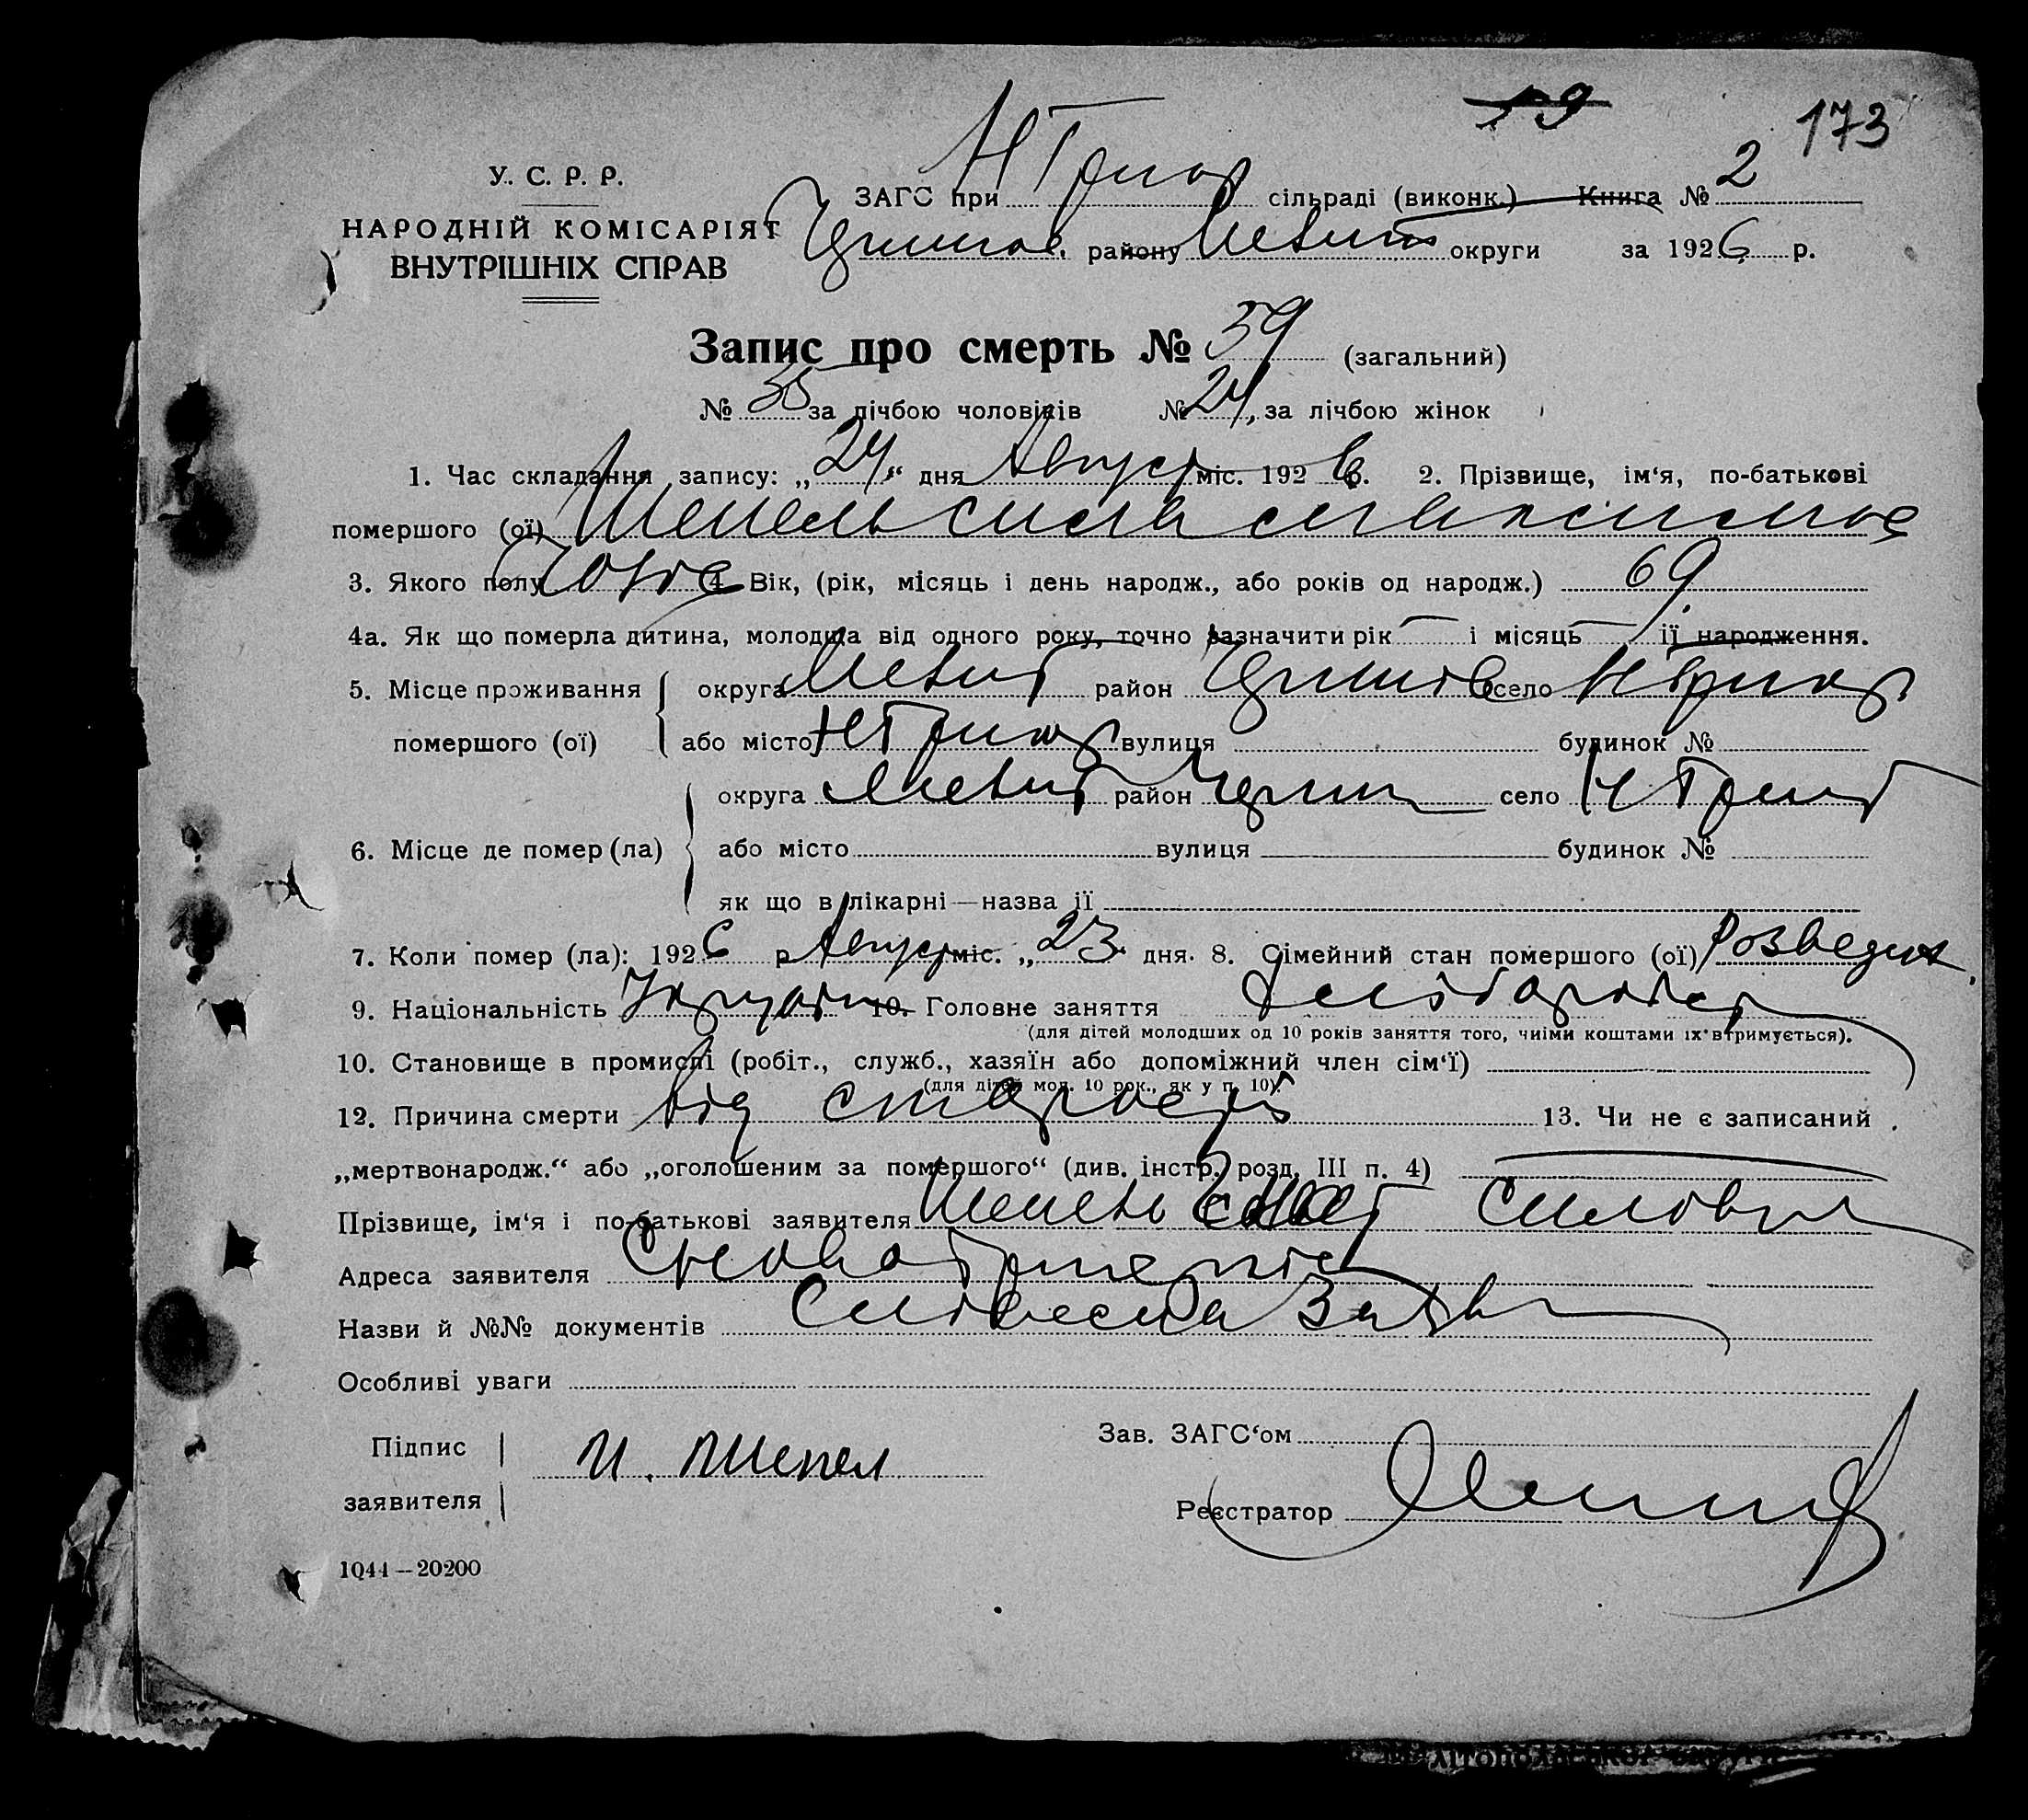 19 173
У. С. Р. Р.
ЗАГС при Н Григор сільраді (виконк.) Книга № 2
НАРОДНІЙ КОМІСАРІЯТ
ВНУТРІШНІХ СПРАВ
району Меліт округи за 1926 р.
Запис про смерть № 59 (загальний)
№ 35 за лічбою чоловіків № 24 за лічбою жінок
1. Час складання запису: „24“ дня Август міс. 1926 р. 2. Прізвище, ім‘я, по-батькові
помершого (ої) Шепель Сила
3. Якого полу 4. Вік, (рік, місяць і день народж., або років од народж.) 69
4а. Як що померла дитина, молодща від одного року, точно зазначити рік і місяць її народження.
5. Місце проживання округа Меліт район село Н Григор
помершого (ої) або місто Н Григор вулиця будинок №
округа Меліт район село Н Григ
6. Місце де помер (ла) або місто вулиця будинок №
як що в лікарні—назва її
7. Коли помер (ла): 1926 р. Август міс. „23“ дня. 8. Сімейний стан помершого (ої) Розведен
9. Національність 10. Головне заняття Хлібороб
(для дітей молодших од 10 років заняття того, чиїми коштами їх втримується).
10. Становище в промислі (робіт., служб., хазяїн або допоміжний член сім‘ї)
(для дітей мол. 10 рок., як у п. 10).
12. Причина смерти від старости 13. Чи не є записаний
„мертвонародж.“ або „оголошеним за помершого“ (див. інстр. розд. III п. 4)
Прізвище, ім‘я і по-батькові заявителя Шепель Силович
Адреса заявителя
Назви й №№ документів Словесна Заява
Особливі уваги
Підпис
заявителя
И. Шепел
Зав. ЗАГС‘ом
Реєстратор
1044—20200